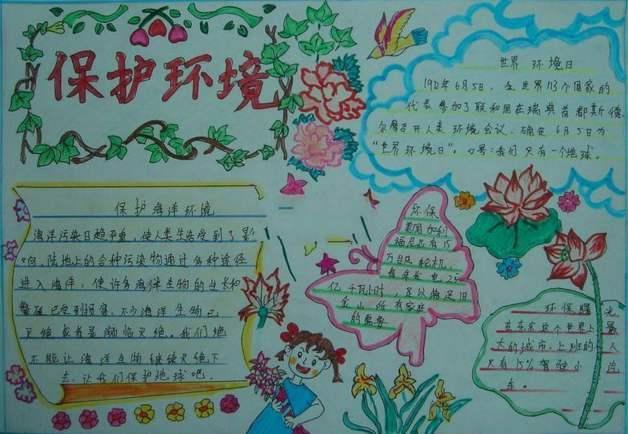 保护环境
世界 环境日
1972年6月5日，在世界113个国家的
代表参加了联和国在瑞典首都斯德
尔摩召开人类环境会议，确定6月5日为
"世界环境日"。口号：我们只有一个地球。
保护海洋环境
海洋污染日趋严重，使人类生活受到了影
响，陆地上的各种污染物通过各种途径
进入海洋，使许多海洋生物的生长和
繁殖已受到损害，不少海洋生物已
灭绝或者是濒临灭绝。我们绝
不能让海洋生物继续灭绝下
去，让我们保护地球吧。
环保
美国加利
福尼亚有15
万
轮机，
有
25
亿 千瓦小时
足旧
金山所有家庭
的需要
环保
东京是这个世界上
大的城市，上班的人
只有15%驾驶小
车。